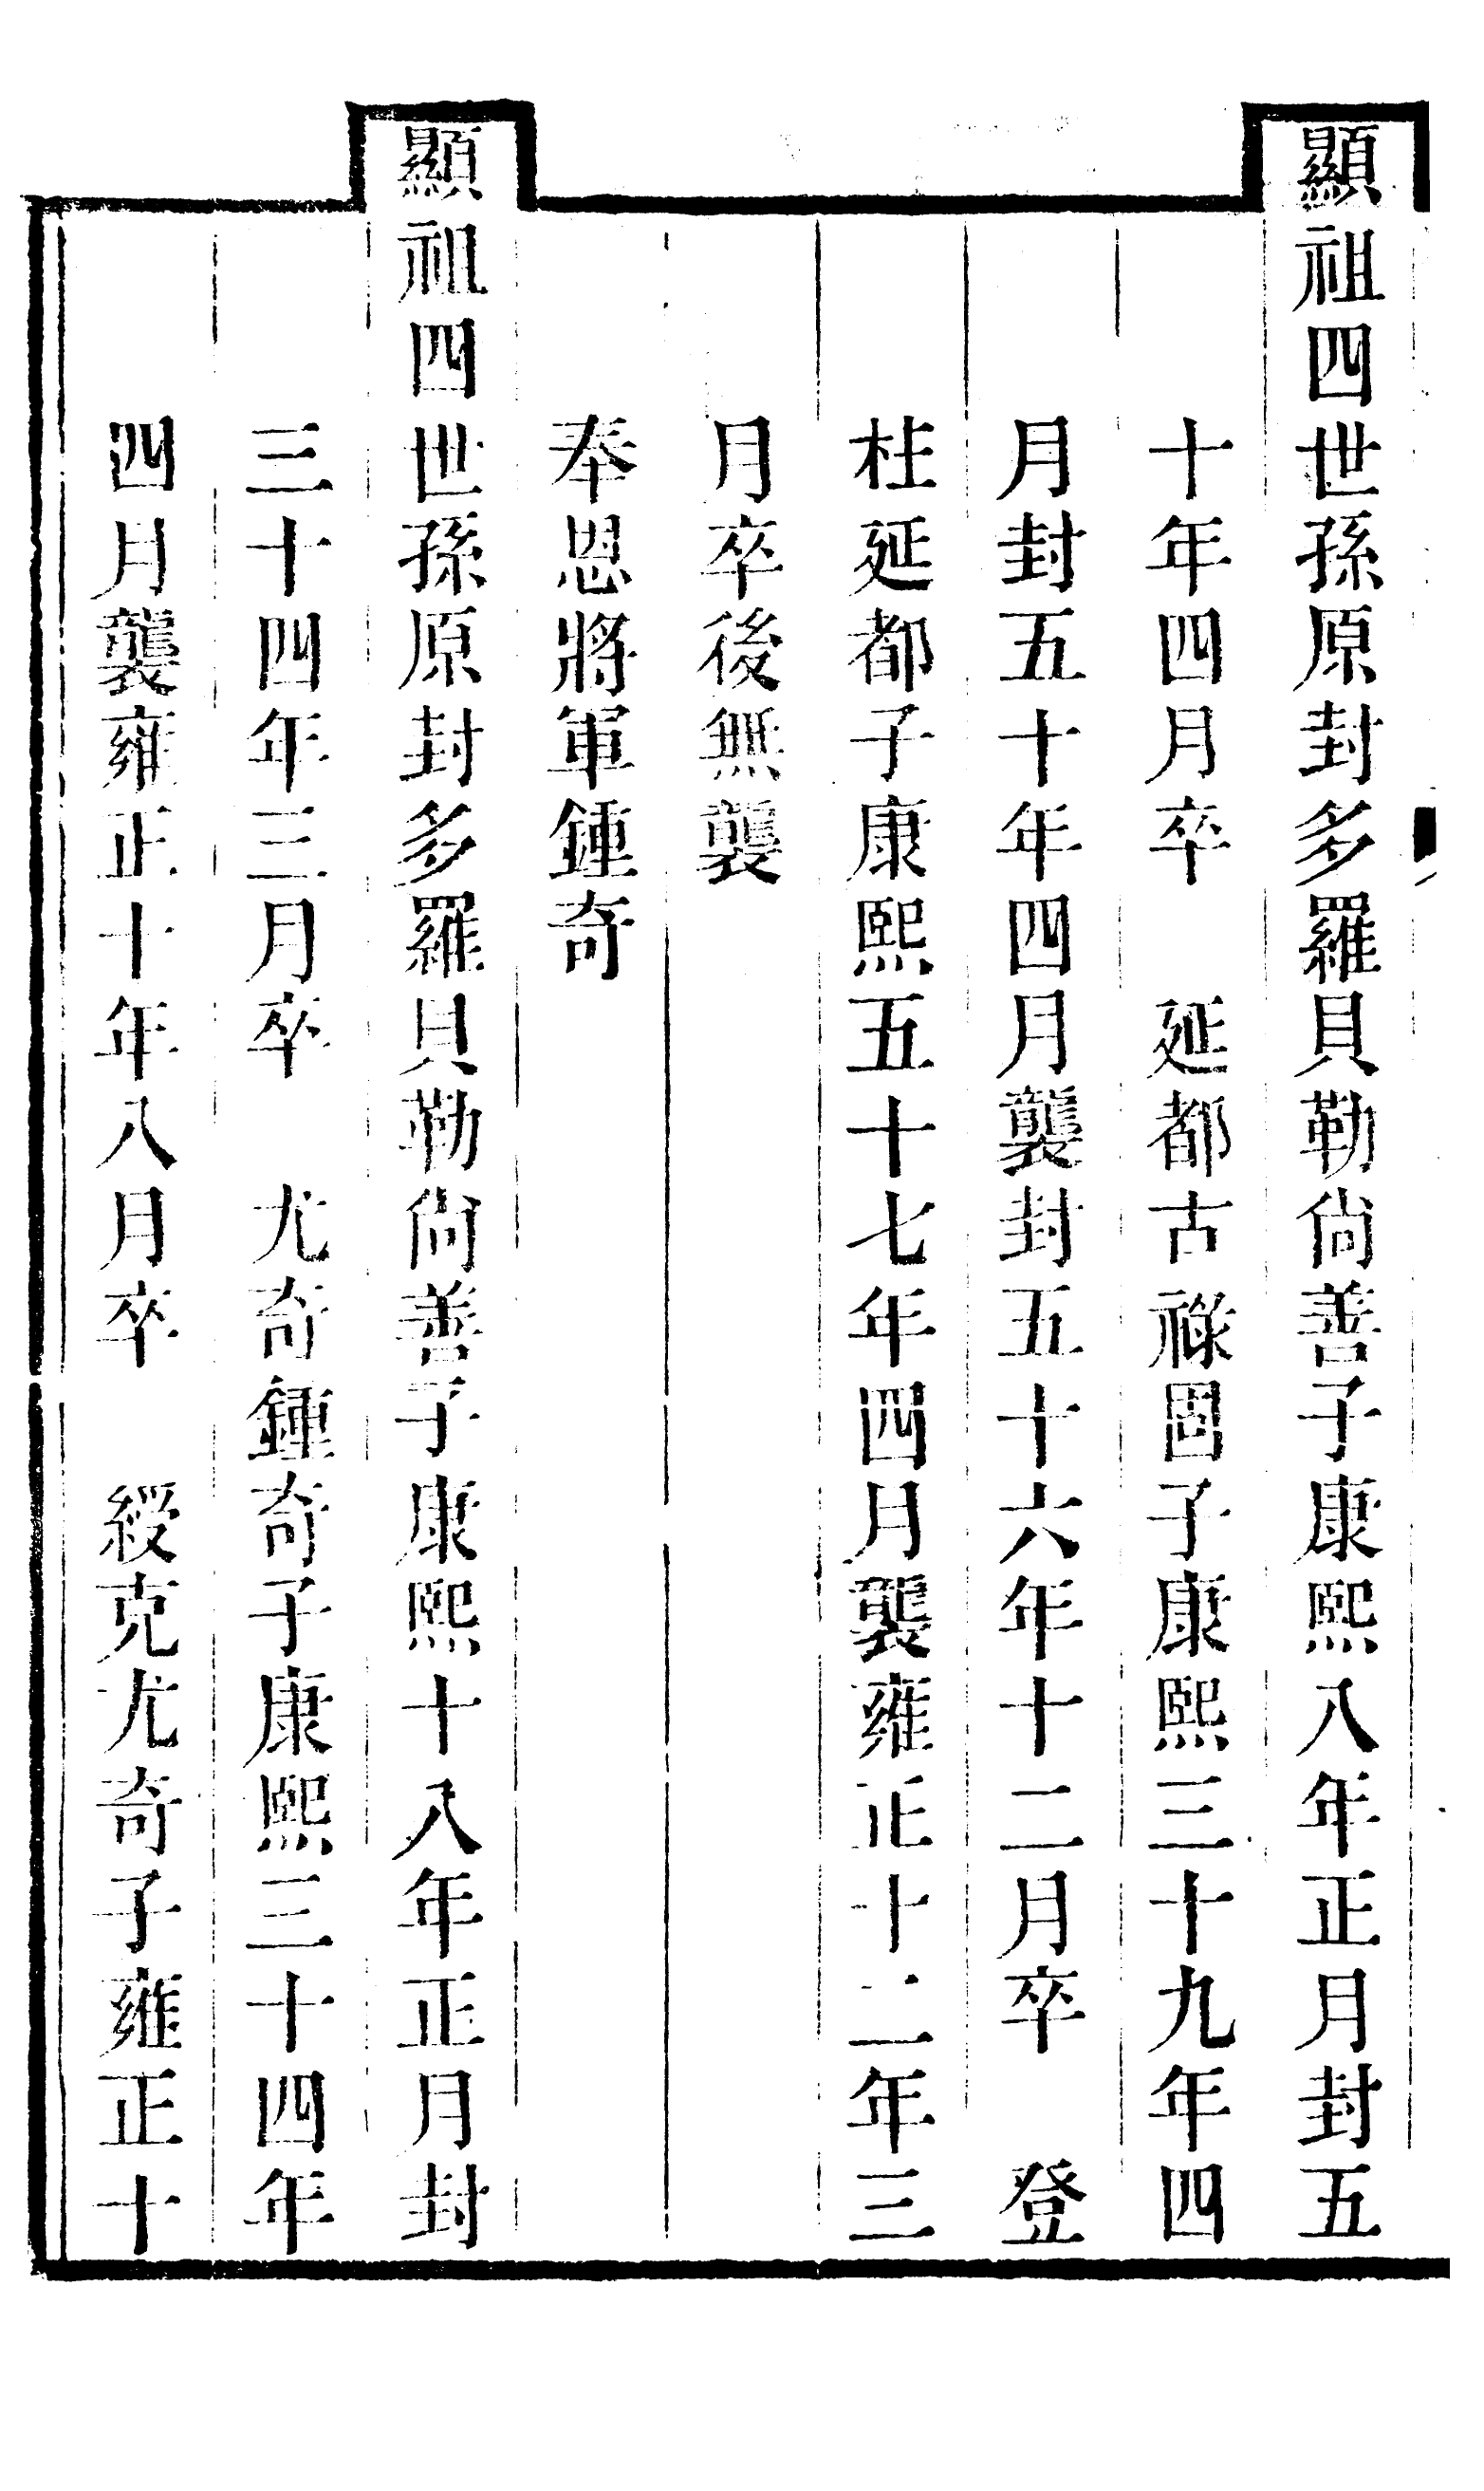 顯祖四世孫原封多羅貝勒尙善子康熙八年正月封五
十年四月卒　延都古祿固子康熙三十九年四
月封五十年四月襲封五十六年十二月卒　登
柱延都子康熙五十七年四月襲雍正十二年三
月卒後無襲
奉恩將軍鍾奇
顯祖四世孫原封多羅貝勒尙善子康熙十八年正月封
三十四年三月卒　尤奇鍾奇子康熙三十四年
四月襲雍正十年八月卒　綬克尤奇子雍正十